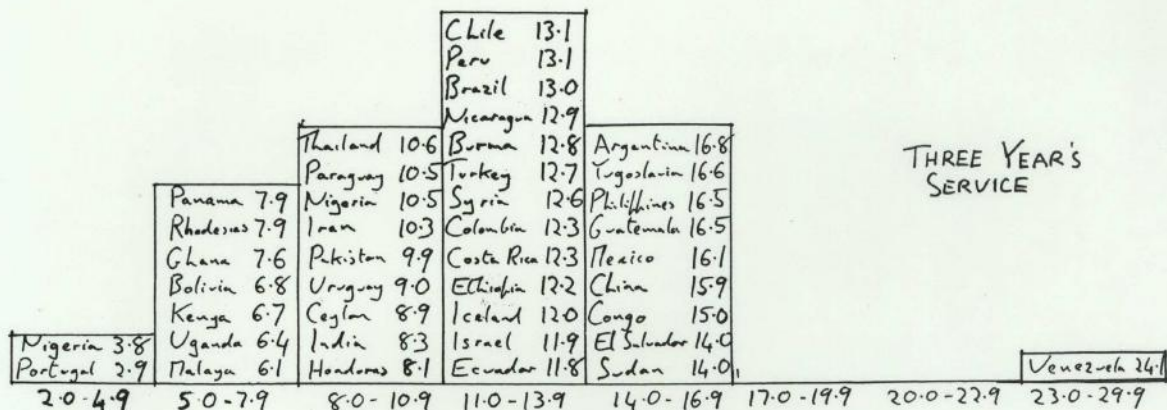 Nigeria 3.8
Portugal 2.9
2.0-4.9
Panama 7.9
Rhodesias 7.9
Ghana 7.6
Bolivia 6.8
Kenya 6.7
Uganda 6.4
Malaya 6.1
5.0-7.9
Thailand 10.6
Paraguay 10.5
Nigeria 10.5
Iran 10.3
Pakistan 9.9
Uruguay 9.0
Ceylon 8.9
India 8.3
Hondoras 8.1
8.0-10.9
Chile 13.1
Peru 13.1
Brazil 13.0
Nicaragua 12.9
Burma 12.8
Turkey 12.7
Syria 12.6
Colombia 12.3
Costa Rica 12.3
Ethiopia 12.2
Iceland 12.0
Israel 11.9
Ecuador 11.8
11.0-13.9
Argentina 16.8
Yugoslavia 16.6
Philippines 16.5
Guatemala 16.5
Mexico 16.1
China 15.9
Congo 15.0
El Salvador 14.0
Sudan 14.0
14.0-16.9
17.0-19.9
20.0-22.9
THREE YEAR'S
SERVICE
Venezuela 24.1
23.0-29.9